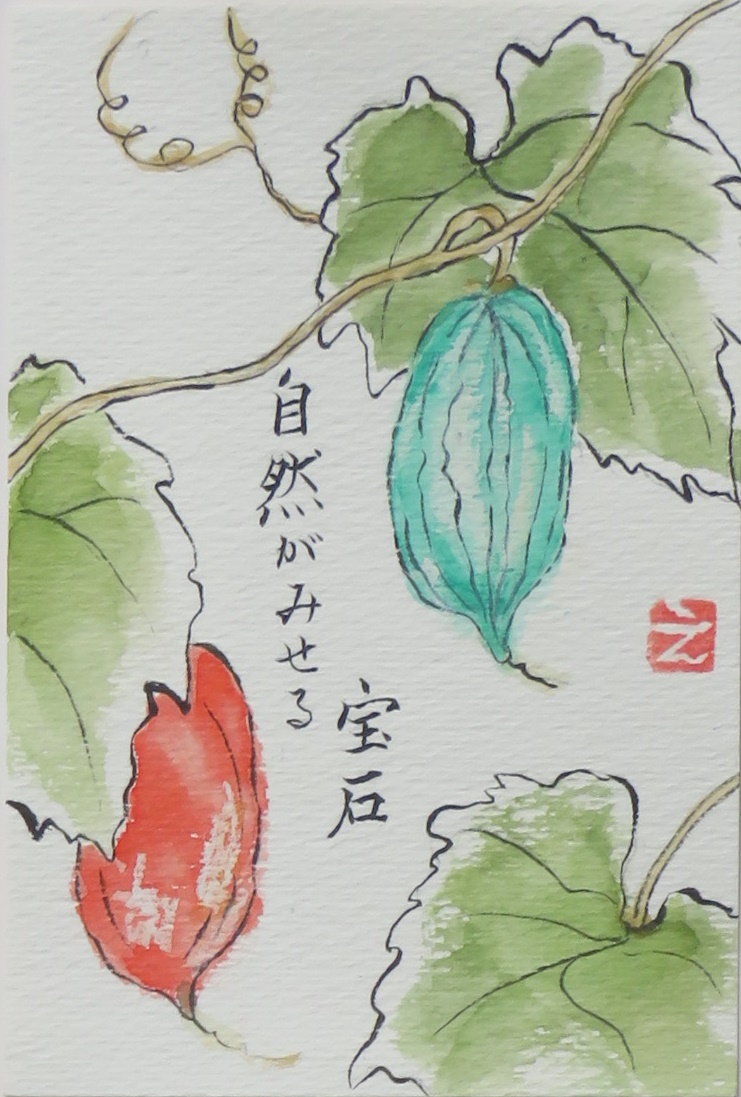 自然がみせる
宝石